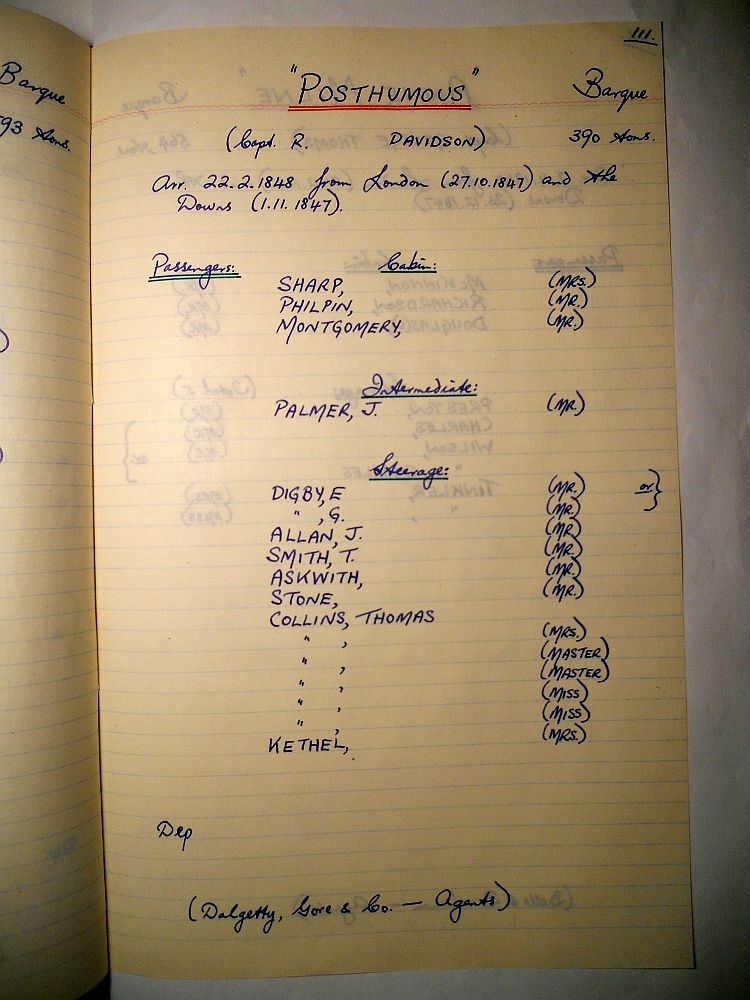 Barque
93 tons.
111.
"POSTHUMOUS" Barque
(Capt. R. DAVIDSON) 390 tons.
Arr. 22.2.1848 from London (27.10.1847) and the
Downs (1.11.1847).
Passengers: Cabin:
SHARP, (MRS.)
PHILPIN, (MR.)
MONTGOMERY, (MR.)
Intermediate:
PALMER, J. (MR.)
Steerage:
DIGBY, E (MR.) or }
" , G. (MR.)
ALLAN, J. (MR.)
SMITH, T. (MR.)
ASKWITH, (MR.)
STONE, (MR.)
COLLINS, THOMAS
" , (MRS.)
" , (MASTER)
" , (MASTER)
" , (MISS)
" , (MISS)
KETHEL, (MRS.)
Dep
(Dalgetty, Gore & Co. — Agents)